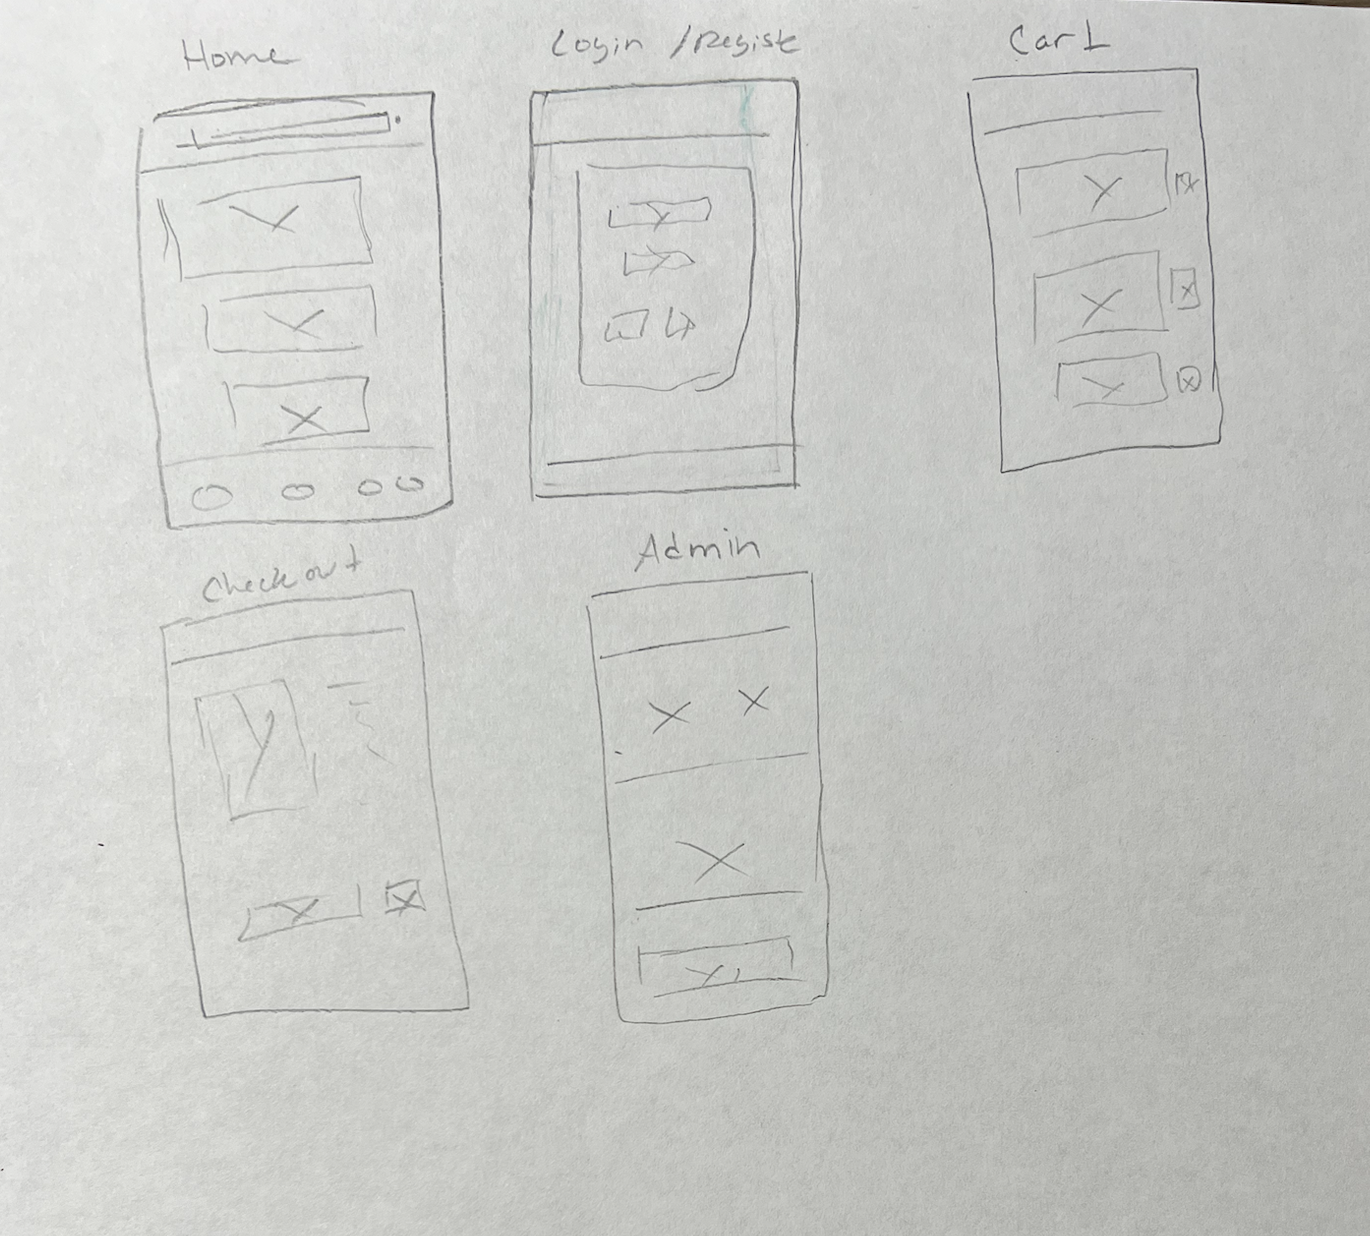 Home
Login / Registe
Cart
Checkout
Admin